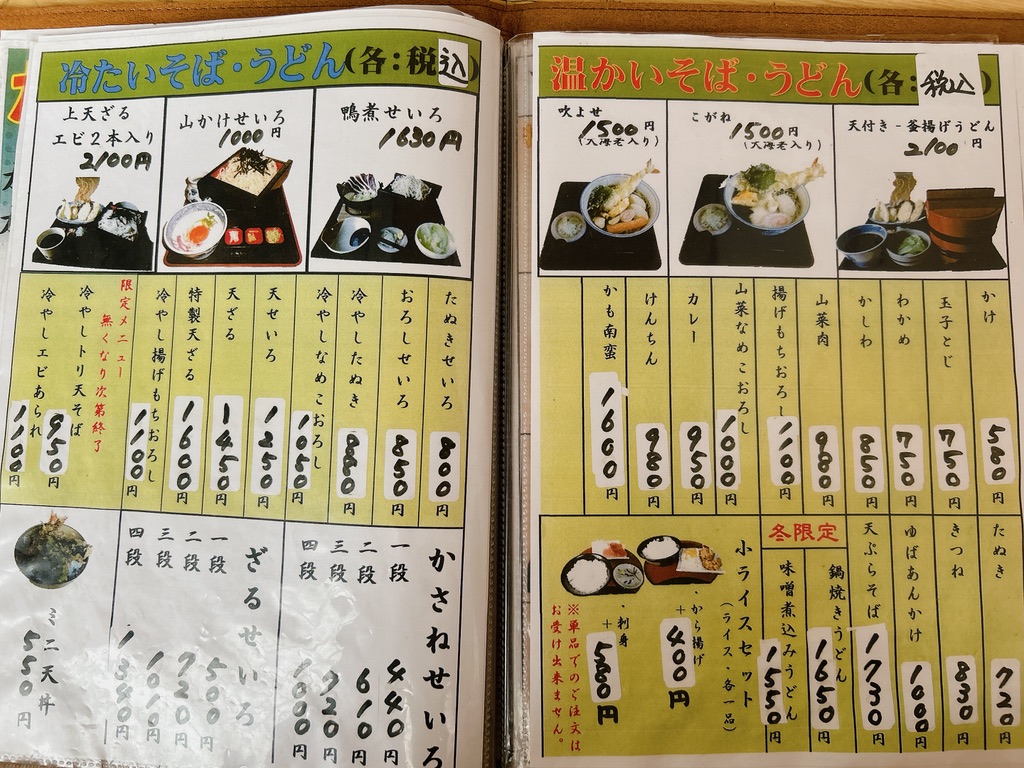 冷たいそば・うどん(各:税込)
上天ざる
エビ2本入り
2100円
山かけせいろ
1000円
鴨煮せいろ
1630円
たぬきせいろ 800円
おろしせいろ 850円
冷やしたぬき 980円
冷やしなめこおろし 1050円
天せいろ 1250円
天ざる 1450円
特製天ざる 1600円
冷やし揚げもちおろし 1100円
限定メニュー
無くなり次第終了
冷やしトリ天そば 950円
冷やしエビあられ 1100円
かさねせいろ
一段 440円
二段 610円
三段 920円
四段 1000円
ざるせいろ
一段 500円
二段 720円
三段 1010円
四段 1340円
ミニ天丼
550円
温かいそば・うどん(各:税込
吹よせ
1500円
(大海老入り)
こがね
1500円
(大海老入り)
天付き-釜揚げうどん
2100円
かけ 580円
玉子とじ 750円
わかめ 750円
かしわ 850円
山菜肉 980円
揚げもちおろし 1100円
山菜なめこおろし 1000円
カレー 950円
けんちん 980円
かも南蛮 1600円
たぬき 720円
きつね 830円
ゆばあんかけ 1000円
天ぷらそば 1730円
冬限定
鍋焼きうどん 1650円
味噌煮込みうどん 1550円
小ライスセット
(ライス・各一品)
・から揚げ
+400円
・刺身
+580円
※単品でのご注文は
お受け出来ません。